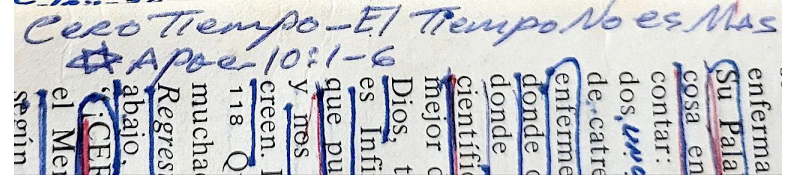 Cero Tiempo - El Tiempo No es Mas
Apoc 10:1-6
enferma
Su Pala
cosa en
contar:
dos, uno
de catre
enferme
donde
donde
científi
mejor
Dios, t
es Infi
que pu
y nos
creen
118 Q
mucha
Regres
abajo,
“¡CER
el Mer
según